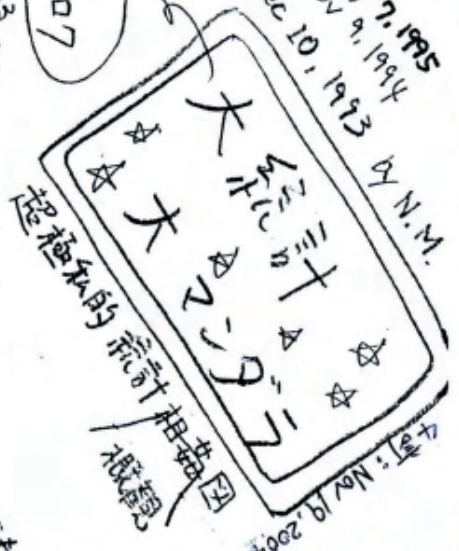 07
7, 1995
v 9, 1994
ec 10, 1993 by N.M.
大統計
大マンダラ
超極私的 統計相姦図
概観
Nov 19, 200